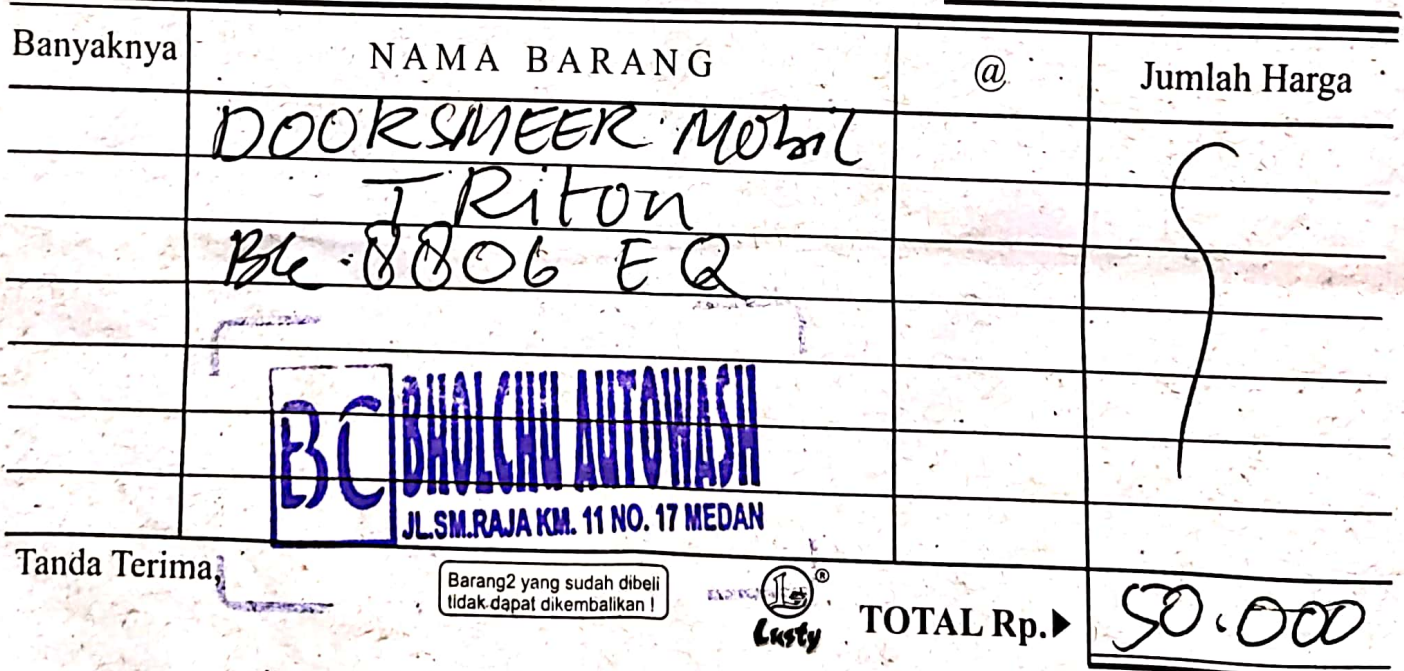 Banyaknya NAMA BARANG @ Jumlah Harga
DOORSMEER Mobil
TRiton
BK 8806 EQ
BC BHOLCHU AUTOWASH
JL.SM.RAJA KM. 11 NO. 17 MEDAN
Tanda Terima,
Barang2 yang sudah dibeli
tidak dapat dikembalikan !
L ®
Lusty
TOTAL Rp. 50.000